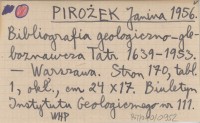 PIROŻEK Janina 1956.
Bibliografia geologiczno-gle-
boznawcza Tatr 1639-1953.
— Warszawa. Stron 170, tabl.
1, okł., cm 24 x 17. Biuletyn
Instytutu Geologicznego nr 111.
WHP